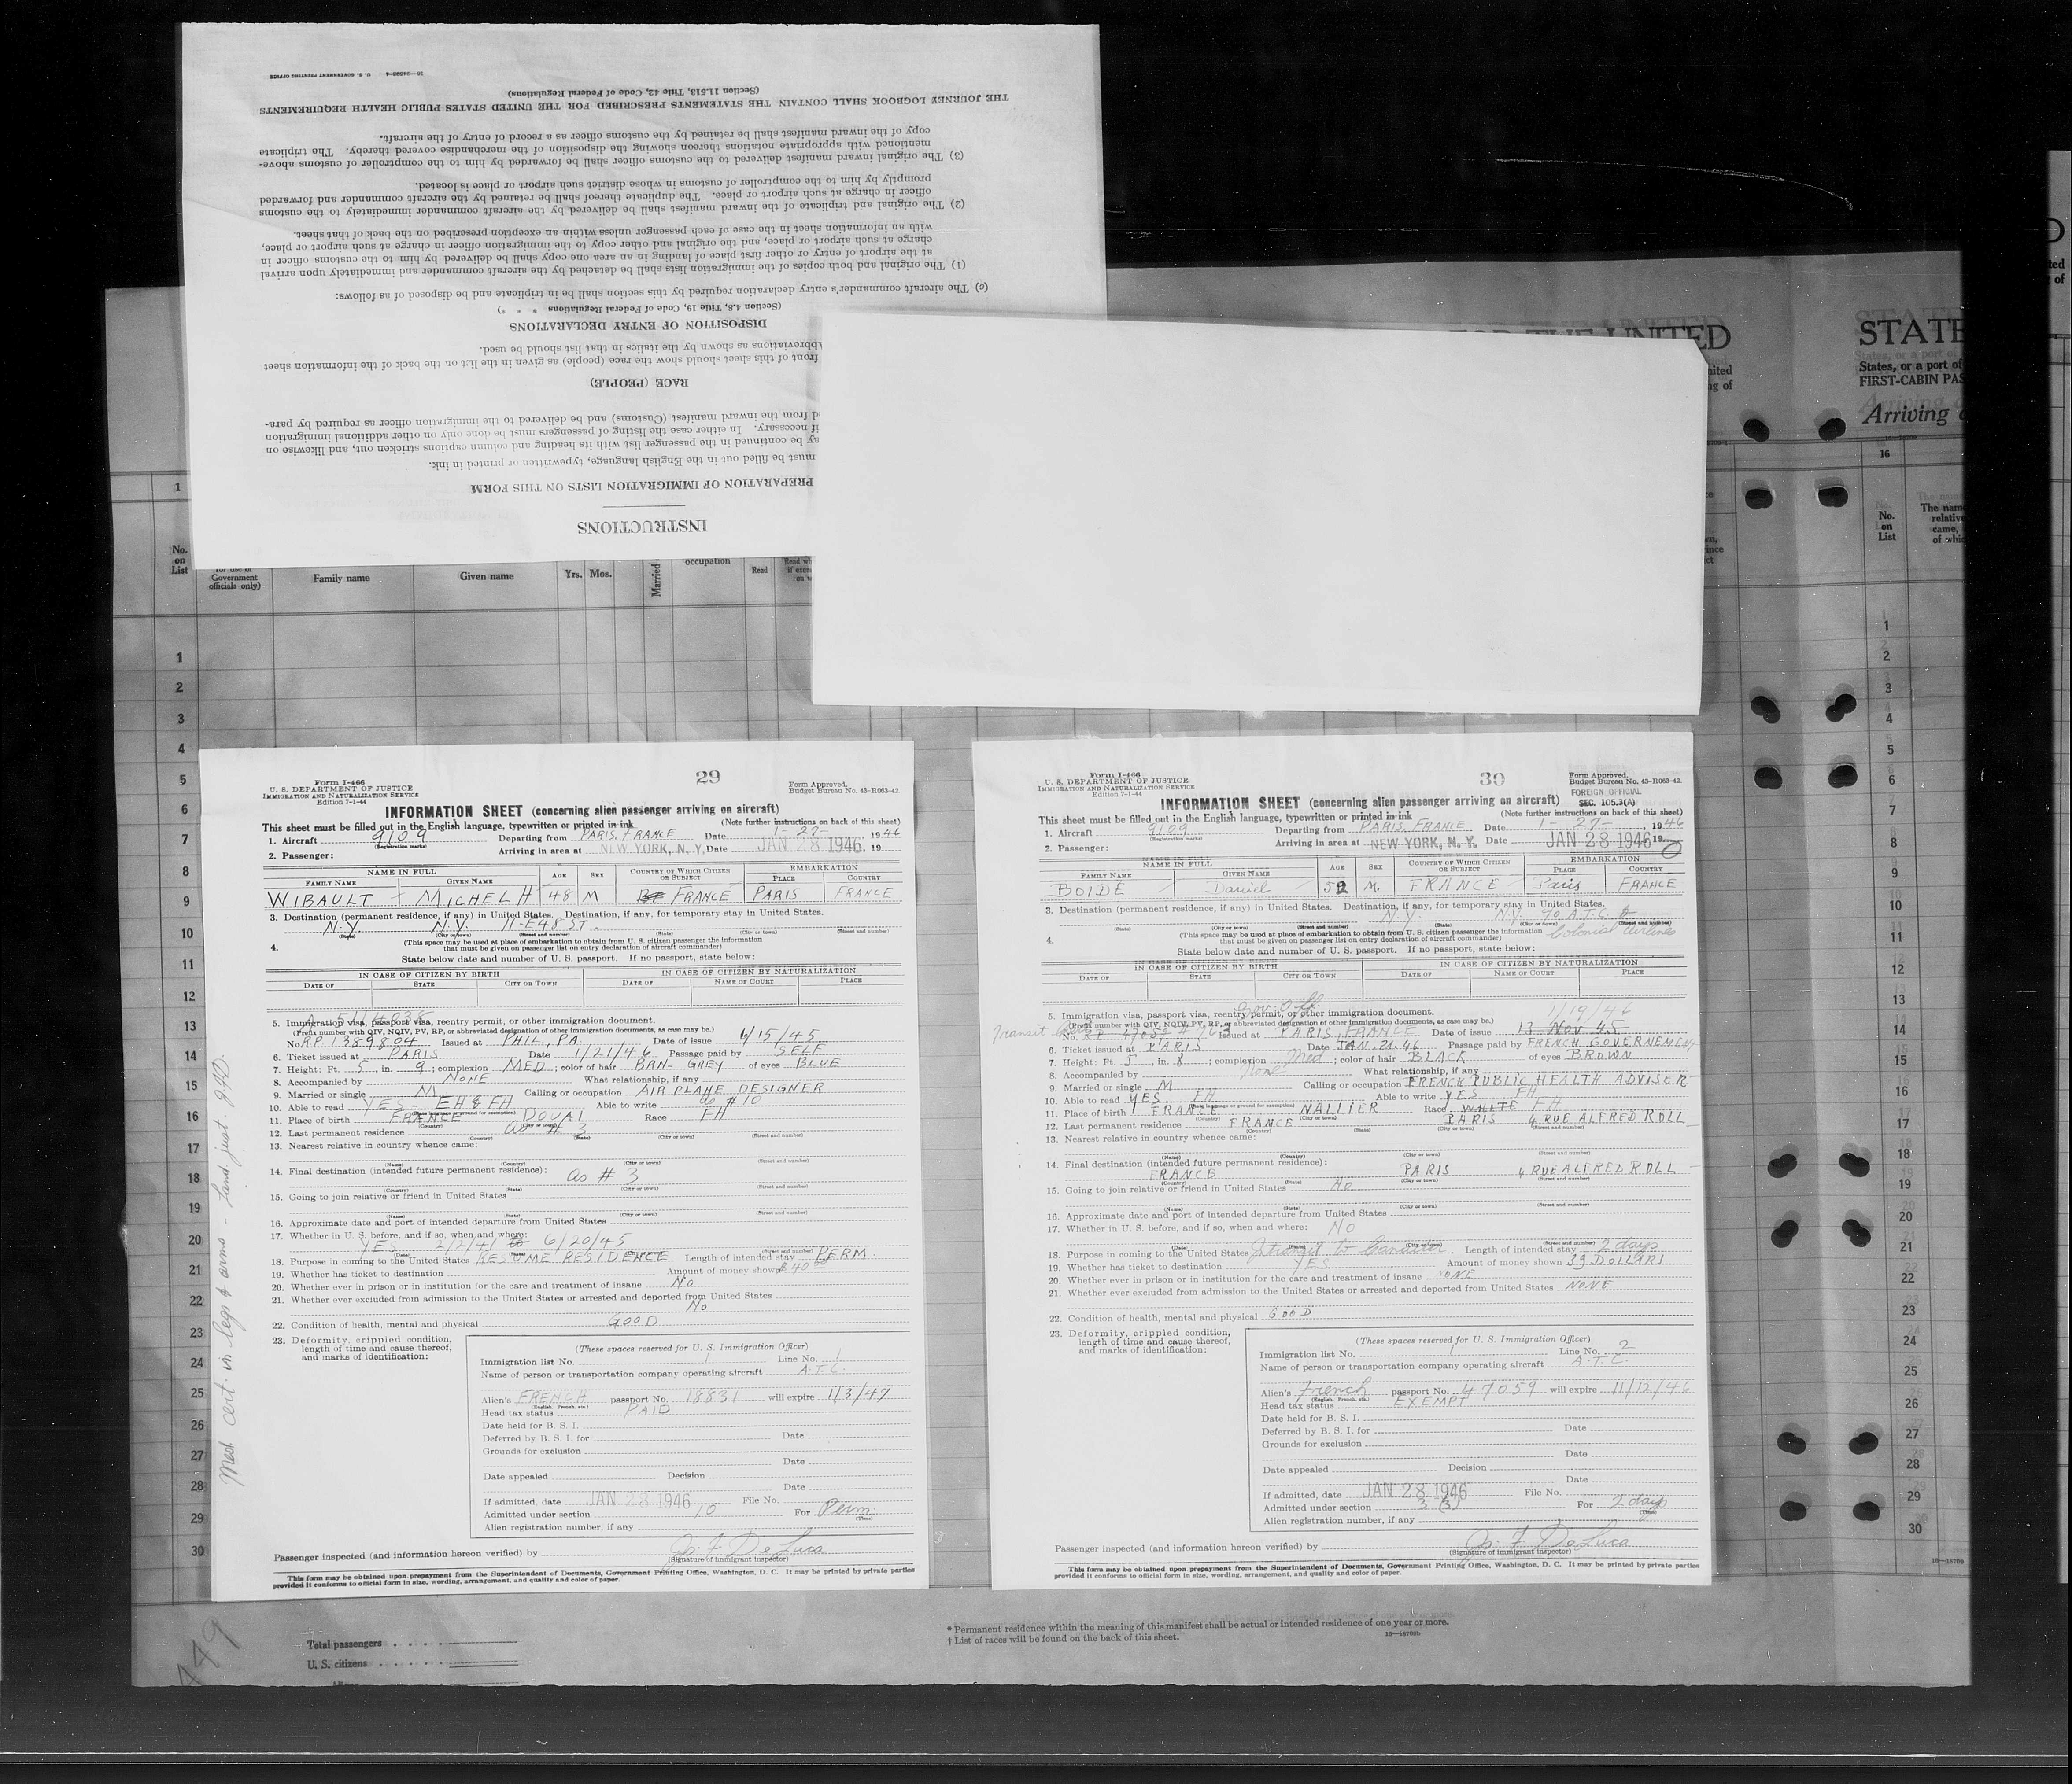 16—24298-4 U. S. GOVERNMENT PRINTING OFFICE
(Section 11.513, Title 42, Code of Federal Regulations)
THE JOURNEY LOGBOOK SHALL CONTAIN THE STATEMENTS PRESCRIBED FOR THE UNITED STATES PUBLIC HEALTH REQUIREMENTS
copy of the inward manifest shall be retained by the customs officer as a record of entry of the aircraft.
mentioned with appropriate notations thereon showing the disposition of the merchandise covered thereby. The triplicate
(3) The original inward manifest delivered to the customs officer shall be forwarded by him to the comptroller of customs above-
promptly by him to the comptroller of customs in whose district such airport or place is located.
officer in charge at such airport or place. The duplicate thereof shall be retained by the aircraft commander and forwarded
(2) The original and triplicate of the inward manifest shall be delivered by the aircraft commander immediately to the customs
with an information sheet in the case of each passenger unless within an exception prescribed on the back of that sheet.
charge at such airport or place, and the original and other copy to the immigration officer in charge at such airport or place,
at the airport of entry or other first place of landing in an area one copy shall be delivered by him to the customs officer in
(1) The original and both copies of the immigration lists shall be detached by the aircraft commander and immediately upon arrival
(c) The aircraft commander's entry declaration required by this section shall be in triplicate and be disposed of as follows:
(Section 4.8, Title 19, Code of Federal Regulations * * *)
DISPOSITION OF ENTRY DECLARATIONS
Abbreviations as shown by the italics in that list should be used.
front of this sheet should show the race (people) as given in the list on the back of the information sheet
RACE (PEOPLE)
d from the inward manifest (Customs) and be delivered to the immigration officer as required by para-
if necessary. In either case the listing of passengers must be done only on other additional immigration
ay be continued in the passenger list with its heading and column captions stricken out, and likewise on
must be filled out in the English language, typewritten or printed in ink.
PREPARATION OF IMMIGRATION LISTS ON THIS FORM
INSTRUCTIONS
FOR THE UNITED
STATE
States, or a port of
FIRST-CABIN PAS
Arriving
1
16
No. on List
Government officials only)
Family name
Given name
Yrs. Mos.
Married
occupation
Read
29
Form I-466
U. S. DEPARTMENT OF JUSTICE
IMMIGRATION AND NATURALIZATION SERVICE
Edition 7-1-44
Form Approved.
Budget Bureau No. 43-R063-42.
INFORMATION SHEET (concerning alien passenger arriving on aircraft)
This sheet must be filled out in the English language, typewritten or printed in ink (Note further instructions on back of this sheet)
1. Aircraft 9109 Departing from PARIS, FRANCE Date 1-27- 1946
(Registration marks)
2. Passenger: Arriving in area at NEW YORK, N. Y. Date JAN 28 1946, 19
NAME IN FULL AGE SEX COUNTRY OF WHICH CITIZEN OR SUBJECT EMBARKATION
FAMILY NAME GIVEN NAME PLACE COUNTRY
WIBAULT MICHEL H 48 M FRANCE PARIS FRANCE
3. Destination (permanent residence, if any) in United States. Destination, if any, for temporary stay in United States.
N.Y. N.Y. 11-E48 ST.
(State) (City or town) (Street and number) (State) (City or town) (Street and number)
4. (This space may be used at place of embarkation to obtain from U. S. citizen passenger the information
that must be given on passenger list on entry declaration of aircraft commander)
State below date and number of U. S. passport. If no passport, state below:
IN CASE OF CITIZEN BY BIRTH IN CASE OF CITIZEN BY NATURALIZATION
DATE OF STATE CITY OR TOWN DATE OF NAME OF COURT PLACE
5. Immigration visa, passport visa, reentry permit, or other immigration document.
(Prefix number with QIV, NQIV, PV, RP, or abbreviated designation of other immigration documents, as case may be.)
No. RP 1389804 Issued at PHIL, PA. Date of issue 6/15/45
6. Ticket issued at PARIS Date 1/21/46 Passage paid by SELF
7. Height: Ft. 5, in. 9; complexion MED; color of hair BRN-GREY of eyes BLUE
8. Accompanied by NONE What relationship, if any
9. Married or single M Calling or occupation AIRPLANE DESIGNER
10. Able to read YES - EH & FH Able to write as #10
11. Place of birth FRANCE DOUAI Race FH
12. Last permanent residence as # 3
13. Nearest relative in country whence came:
14. Final destination (intended future permanent residence): as # 3
15. Going to join relative or friend in United States
16. Approximate date and port of intended departure from United States
17. Whether in U. S. before, and if so, when and where:
YES 2/2/41 to 6/20/45
18. Purpose in coming to the United States RESUME RESIDENCE Length of intended stay PERM.
19. Whether has ticket to destination Amount of money shown $40
20. Whether ever in prison or in institution for the care and treatment of insane No
21. Whether ever excluded from admission to the United States or arrested and deported from United States
No
22. Condition of health, mental and physical GOOD
23. Deformity, crippled condition, length of time and cause thereof, and marks of identification:
(These spaces reserved for U. S. Immigration Officer)
Immigration list No. 1 Line No. 1
Name of person or transportation company operating aircraft A.T.C.
Alien's FRENCH passport No. 18831 will expire 1/3/47
Head tax status PAID
Date held for B. S. I.
Deferred by B. S. I. for Date
Grounds for exclusion
Date
Date appealed Decision
Date
If admitted, date JAN 28 1946 File No.
Admitted under section 10 For Perm.
(Time)
Alien registration number, if any
Passenger inspected (and information hereon verified) by Jos. F. DeLuca
(Signature of immigrant inspector)
This form may be obtained upon prepayment from the Superintendent of Documents, Government Printing Office, Washington, D. C. It may be printed by private parties
provided it conforms to official form in size, wording, arrangement, and quality and color of paper.
Med. cert. in legs & arms - Land just. JFD.
30
Form I-466
U. S. DEPARTMENT OF JUSTICE
IMMIGRATION AND NATURALIZATION SERVICE
Edition 7-1-44
Form Approved.
Budget Bureau No. 43-R063-42.
FOREIGN OFFICIAL
SEC. 105.3(A)
INFORMATION SHEET (concerning alien passenger arriving on aircraft)
This sheet must be filled out in the English language, typewritten or printed in ink (Note further instructions on back of this sheet)
1. Aircraft 9109 Departing from PARIS, FRANCE Date 1-27- 1946
(Registration marks)
2. Passenger: Arriving in area at NEW YORK, N. Y. Date JAN 28 1946 19
NAME IN FULL AGE SEX COUNTRY OF WHICH CITIZEN OR SUBJECT EMBARKATION
FAMILY NAME GIVEN NAME PLACE COUNTRY
BOIDE Daniel 52 M. FRANCE Paris FRANCE
3. Destination (permanent residence, if any) in United States. Destination, if any, for temporary stay in United States.
N.Y. N.Y. % A.T.C.
Colonial Airlines
(State) (City or town) (Street and number) (State) (City or town) (Street and number)
4. (This space may be used at place of embarkation to obtain from U. S. citizen passenger the information
that must be given on passenger list on entry declaration of aircraft commander)
State below date and number of U. S. passport. If no passport, state below:
IN CASE OF CITIZEN BY BIRTH IN CASE OF CITIZEN BY NATURALIZATION
DATE OF STATE CITY OR TOWN DATE OF NAME OF COURT PLACE
1/19/46
5. Immigration visa, passport visa, reentry permit, or other immigration document.
(Prefix number with QIV, NQIV, PV, RP, or abbreviated designation of other immigration documents, as case may be.)
Transit
No. Issued at PARIS, FRANCE Date of issue 13 Nov 45
6. Ticket issued at PARIS Date JAN. 21. 46 Passage paid by FRENCH GOVERNEMENT
7. Height: Ft. 5, in. 8; complexion Med; color of hair BLACK of eyes BROWN
8. Accompanied by None What relationship, if any
9. Married or single M Calling or occupation FRENCH PUBLIC HEALTH ADVISER
10. Able to read YES FH Able to write YES FH
11. Place of birth FRANCE NALLIER Race WHITE FH
12. Last permanent residence FRANCE PARIS 4 RUE ALFRED ROLL
13. Nearest relative in country whence came:
14. Final destination (intended future permanent residence):
FRANCE PARIS 4 RUE ALFRED ROLL
15. Going to join relative or friend in United States No
16. Approximate date and port of intended departure from United States
17. Whether in U. S. before, and if so, when and where: NO
18. Purpose in coming to the United States Length of intended stay 2 days
19. Whether has ticket to destination YES Amount of money shown 33 DOLLARS
20. Whether ever in prison or in institution for the care and treatment of insane NONE
21. Whether ever excluded from admission to the United States or arrested and deported from United States NONE
22. Condition of health, mental and physical GOOD
23. Deformity, crippled condition, length of time and cause thereof, and marks of identification:
(These spaces reserved for U. S. Immigration Officer)
Immigration list No. 1 Line No. 2
Name of person or transportation company operating aircraft A.T.C.
Alien's French passport No. 47059 will expire 11/12/46
Head tax status EXEMPT
Date held for B. S. I.
Deferred by B. S. I. for Date
Grounds for exclusion
Date
Date appealed Decision
Date
If admitted, date JAN 28 1946 File No.
Admitted under section 3 (3) For 2 days
(Time)
Alien registration number, if any
Passenger inspected (and information hereon verified) by Jos. F. DeLuca
(Signature of immigrant inspector)
This form may be obtained upon prepayment from the Superintendent of Documents, Government Printing Office, Washington, D. C. It may be printed by private parties
provided it conforms to official form in size, wording, arrangement, and quality and color of paper.
* Permanent residence within the meaning of this manifest shall be actual or intended residence of one year or more.
† List of races will be found on the back of this sheet.
Total passengers
U. S. citizens